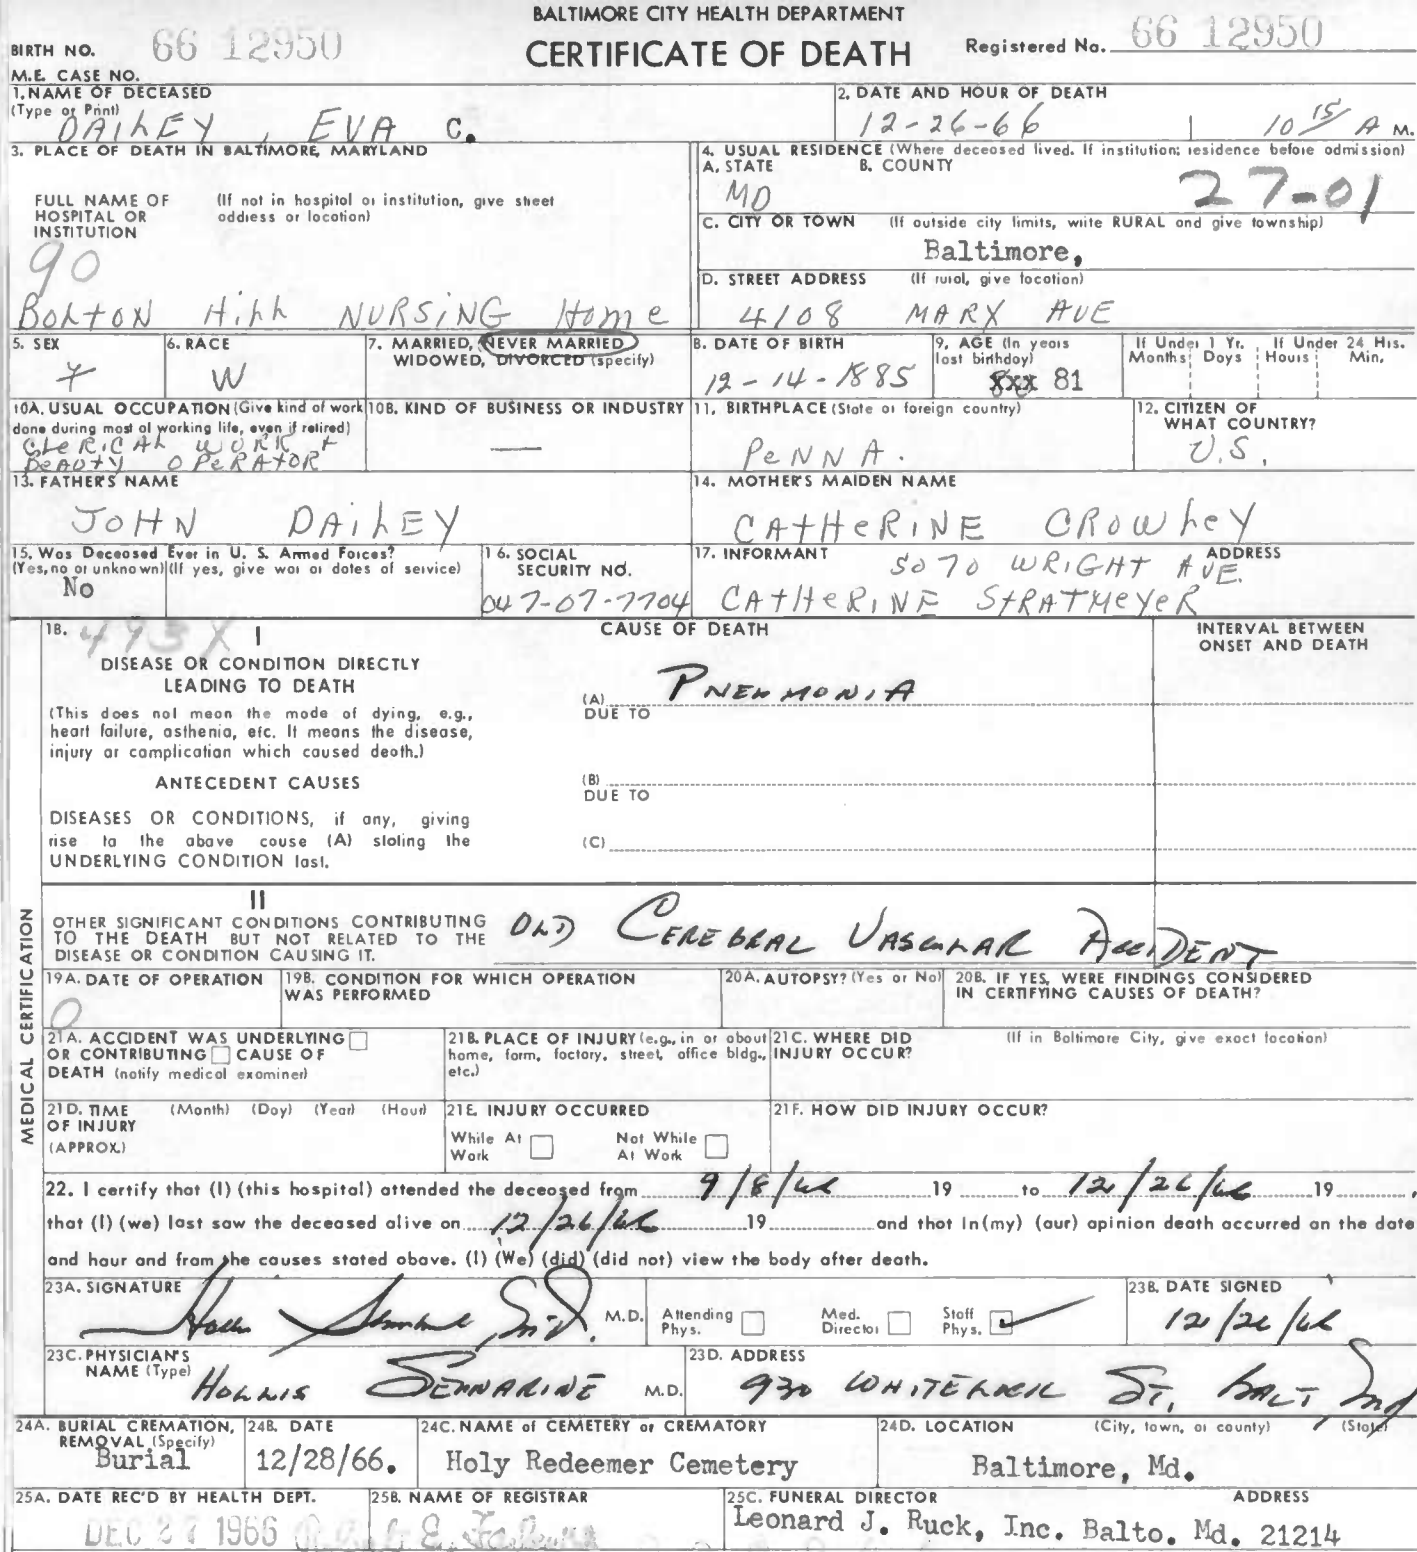 BALTIMORE CITY HEALTH DEPARTMENT
CERTIFICATE OF DEATH
BIRTH NO. 66 12950
Registered No. 66 12950
M.E. CASE NO.
1. NAME OF DECEASED
(Type or Print)
DAILEY, EVA C.
2. DATE AND HOUR OF DEATH
12-26-66 10 15 A M.
3. PLACE OF DEATH IN BALTIMORE, MARYLAND
FULL NAME OF HOSPITAL OR INSTITUTION
(If not in hospital or institution, give street address or location)
90
BOLTON HILL NURSING Home
4. USUAL RESIDENCE (Where deceased lived. If institution; residence before admission)
A. STATE B. COUNTY
MD 27-01
C. CITY OR TOWN (If outside city limits, write RURAL and give township)
Baltimore,
D. STREET ADDRESS (If rural, give location)
4108 MARX AVE
5. SEX
F
6. RACE
W
7. MARRIED, NEVER MARRIED
WIDOWED, DIVORCED (specify)
8. DATE OF BIRTH
12-14-1885
9. AGE (In years last birthday)
xxx 81
If Under 1 Yr. If Under 24 Hrs.
Months Days Hours Min.
10A. USUAL OCCUPATION (Give kind of work done during most of working life, even if retired)
CLERICAL WORK +
BEAUTY OPERATOR
10B. KIND OF BUSINESS OR INDUSTRY
—
11. BIRTHPLACE (State or foreign country)
PENNA.
12. CITIZEN OF WHAT COUNTRY?
U.S.
13. FATHER'S NAME
JOHN DAILEY
14. MOTHER'S MAIDEN NAME
CATHERINE CROWLEY
15. Was Deceased Ever in U. S. Armed Forces?
(Yes, no or unknown) (If yes, give war or dates of service)
No
16. SOCIAL SECURITY NO.
047-07-7704
17. INFORMANT ADDRESS
5070 WRIGHT AVE.
CATHERINE STRATMEYER
18. 493X
I
DISEASE OR CONDITION DIRECTLY
LEADING TO DEATH
(This does not mean the mode of dying, e.g., heart failure, asthenia, etc. It means the disease, injury or complication which caused death.)
ANTECEDENT CAUSES
DISEASES OR CONDITIONS, if any, giving rise to the above cause (A) stating the UNDERLYING CONDITION last.
CAUSE OF DEATH
(A) PNEUMONIA
DUE TO
(B)
DUE TO
(C)
INTERVAL BETWEEN ONSET AND DEATH
II
OTHER SIGNIFICANT CONDITIONS CONTRIBUTING TO THE DEATH BUT NOT RELATED TO THE DISEASE OR CONDITION CAUSING IT.
OLD CEREBRAL VASCULAR ACCIDENT
MEDICAL CERTIFICATION
19A. DATE OF OPERATION
0
19B. CONDITION FOR WHICH OPERATION WAS PERFORMED
20A. AUTOPSY? (Yes or No)
20B. IF YES, WERE FINDINGS CONSIDERED IN CERTIFYING CAUSES OF DEATH?
21A. ACCIDENT WAS UNDERLYING
OR CONTRIBUTING CAUSE OF
DEATH (notify medical examiner)
21B. PLACE OF INJURY (e.g., in or about home, farm, factory, street, office bldg., etc.)
21C. WHERE DID INJURY OCCUR?
(If in Baltimore City, give exact location)
21D. TIME OF INJURY (APPROX.)
(Month) (Day) (Year) (Hour)
21E. INJURY OCCURRED
While At Work Not While At Work
21F. HOW DID INJURY OCCUR?
22. I certify that (I) (this hospital) attended the deceased from 9/8/66 19 to 12/26/66 19 ,
that (I) (we) last saw the deceased alive on 12/26/66 19 and that in (my) (our) opinion death occurred on the date
and hour and from the causes stated above. (I) (We) (did) (did not) view the body after death.
23A. SIGNATURE
M.D.
Attending Phys. Med. Director Staff Phys.
23B. DATE SIGNED
12/26/66
23C. PHYSICIAN'S NAME (Type)
HOLLIS SEUNARINE M.D.
23D. ADDRESS
930 WHITELOCK ST, BALT, Md
24A. BURIAL CREMATION, REMOVAL (Specify)
Burial
24B. DATE
12/28/66.
24C. NAME of CEMETERY or CREMATORY
Holy Redeemer Cemetery
24D. LOCATION (City, town, or county) (State)
Baltimore, Md.
25A. DATE REC'D BY HEALTH DEPT.
DEC 27 1966
25B. NAME OF REGISTRAR
25C. FUNERAL DIRECTOR ADDRESS
Leonard J. Ruck, Inc. Balto. Md. 21214